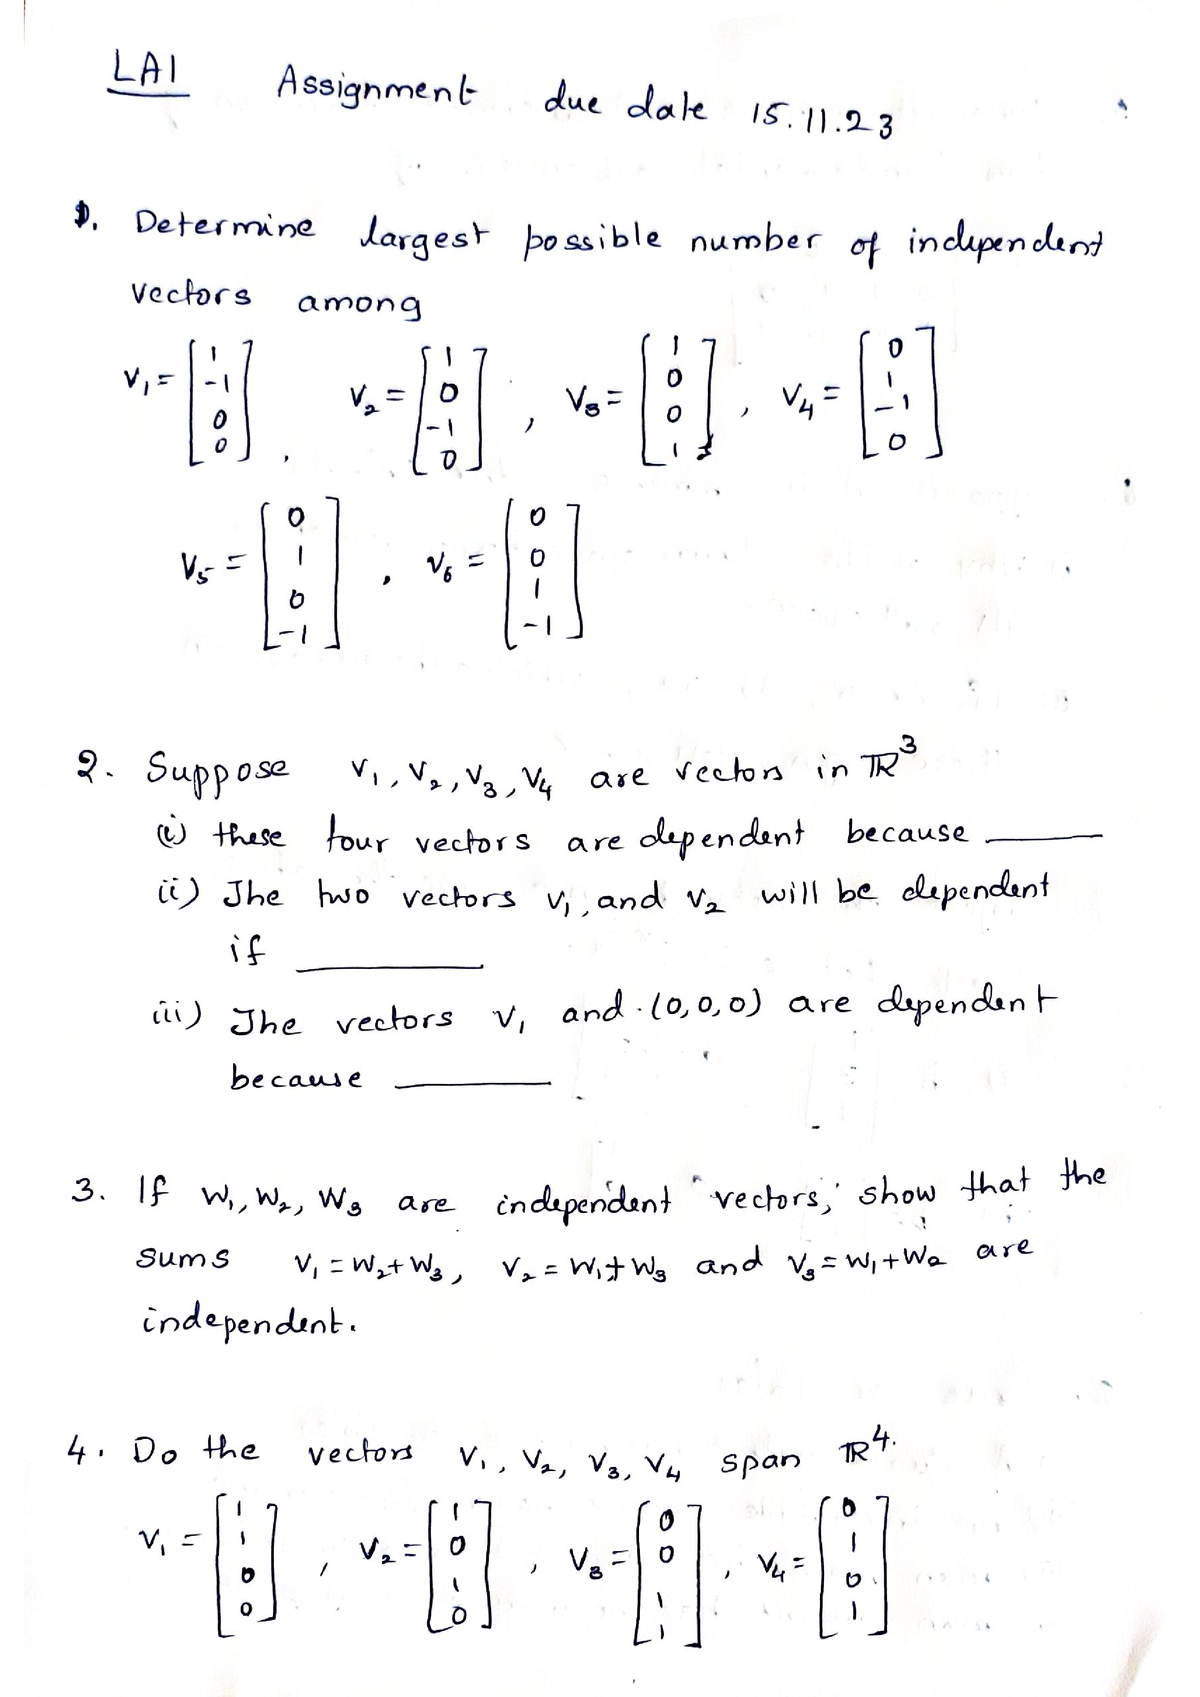 LA1 Assignment due date 15.11.23
1. Determine largest possible number of independent
vectors among
v₁ = [1 -1 0 0], v₂ = [1 0 -1 0], v₃ = [1 0 0 1], v₄ = [0 1 -1 0]
v₅ = [0 1 0 -1], v₆ = [0 0 1 -1]
2. Suppose v₁, v₂, v₃, v₄ are vectors in ℝ³
(i) these four vectors are dependent because ______
ii) The two vectors v₁, and v₂ will be dependent
if ______
iii) The vectors v₁ and (0,0,0) are dependent
because ______
3. If w₁, w₂, w₃ are independent vectors, show that the
sums v₁ = w₂+w₃, v₂ = w₁+w₃ and v₃ = w₁+w₂ are
independent.
4. Do the vectors v₁, v₂, v₃, v₄ span ℝ⁴.
v₁ = [1 1 0 0], v₂ = [1 0 1 0], v₃ = [0 0 1 1], v₄ = [0 1 0 1]